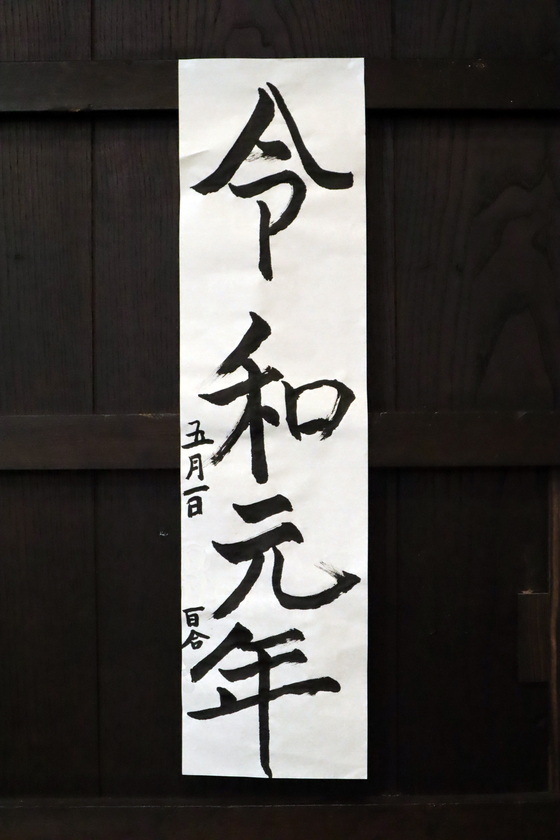 令和元年
五月一日
百合